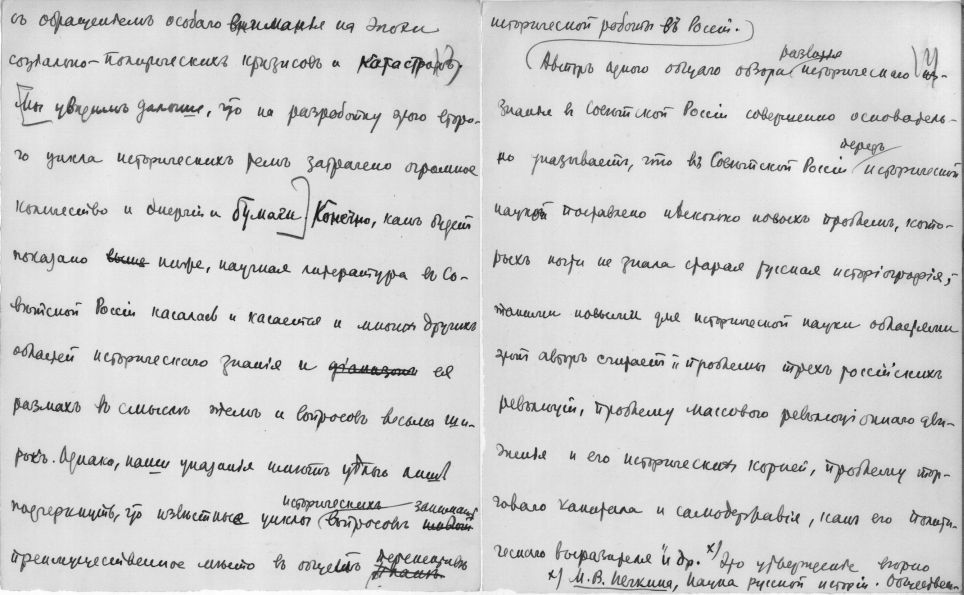 съ обращенiемъ особаго вниманья на эпохи
соцiально-политическихъ кризисовъ и катастрофъ.
Мы увидимъ дальше, что на разработку этого второ-
го цикла историческихъ темъ затрачено огромное
количество и энергiи и бумаги. Конечно, какъ будетъ
показано выше ниже, научная литература въ Со-
вѣтской Россiи касалась и касается и многихъ другихъ
областей историческаго знанiя и дiапазонъ ея
размахъ въ смыслѣ темъ и вопросовъ весьма ши-
рокъ. Однако, наши указанiя имѣютъ цѣлью лишь
подчеркнуть, что извѣстные циклы историческихъ вопросовъ занимаютъ
преимущественное мѣсто въ общемъ
исторической работы въ Россiи.
Авторъ одного общаго обзора развитiя историческаго
знанiя въ Совѣтской Россiи совершенно основатель-
но указываетъ, что въ Совѣтской Россiи передъ исторической
наукой поставлено нѣсколько новыхъ проблемъ, кото-
рыхъ почти не знала старая русская исторiографiя;
такими новыми для исторической науки областями
этотъ авторъ считаетъ "проблемы трехъ россiйскихъ
революцiй, проблему массового революцiоннаго дви-
женiя и его историческихъ корней, проблему тор-
говаго капитала и самодержавiя, какъ его полити-
ческаго выразителя" и др. x) Это утвержденiе вѣрно
x) М.В. Нечкина, Наука русской исторiи. Обществен-